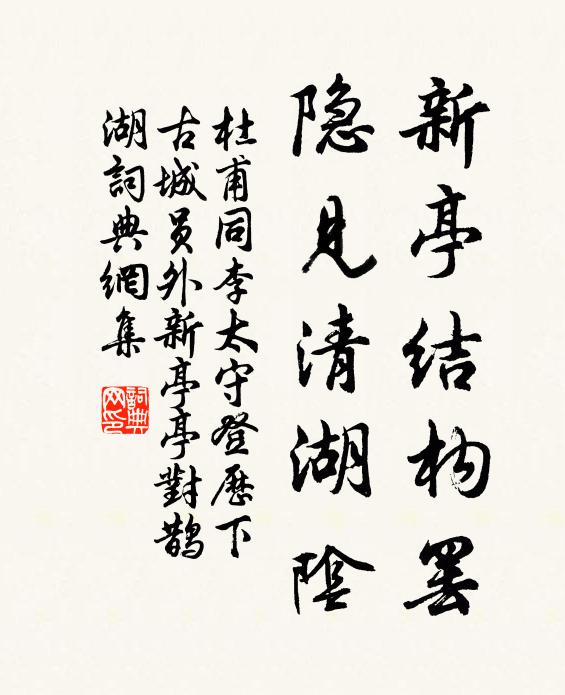 新亭结构罢
隐见清湖阴
杜甫同李太守登歷下
古城员外新亭亭對鹊
湖詞典網集
詞典网印